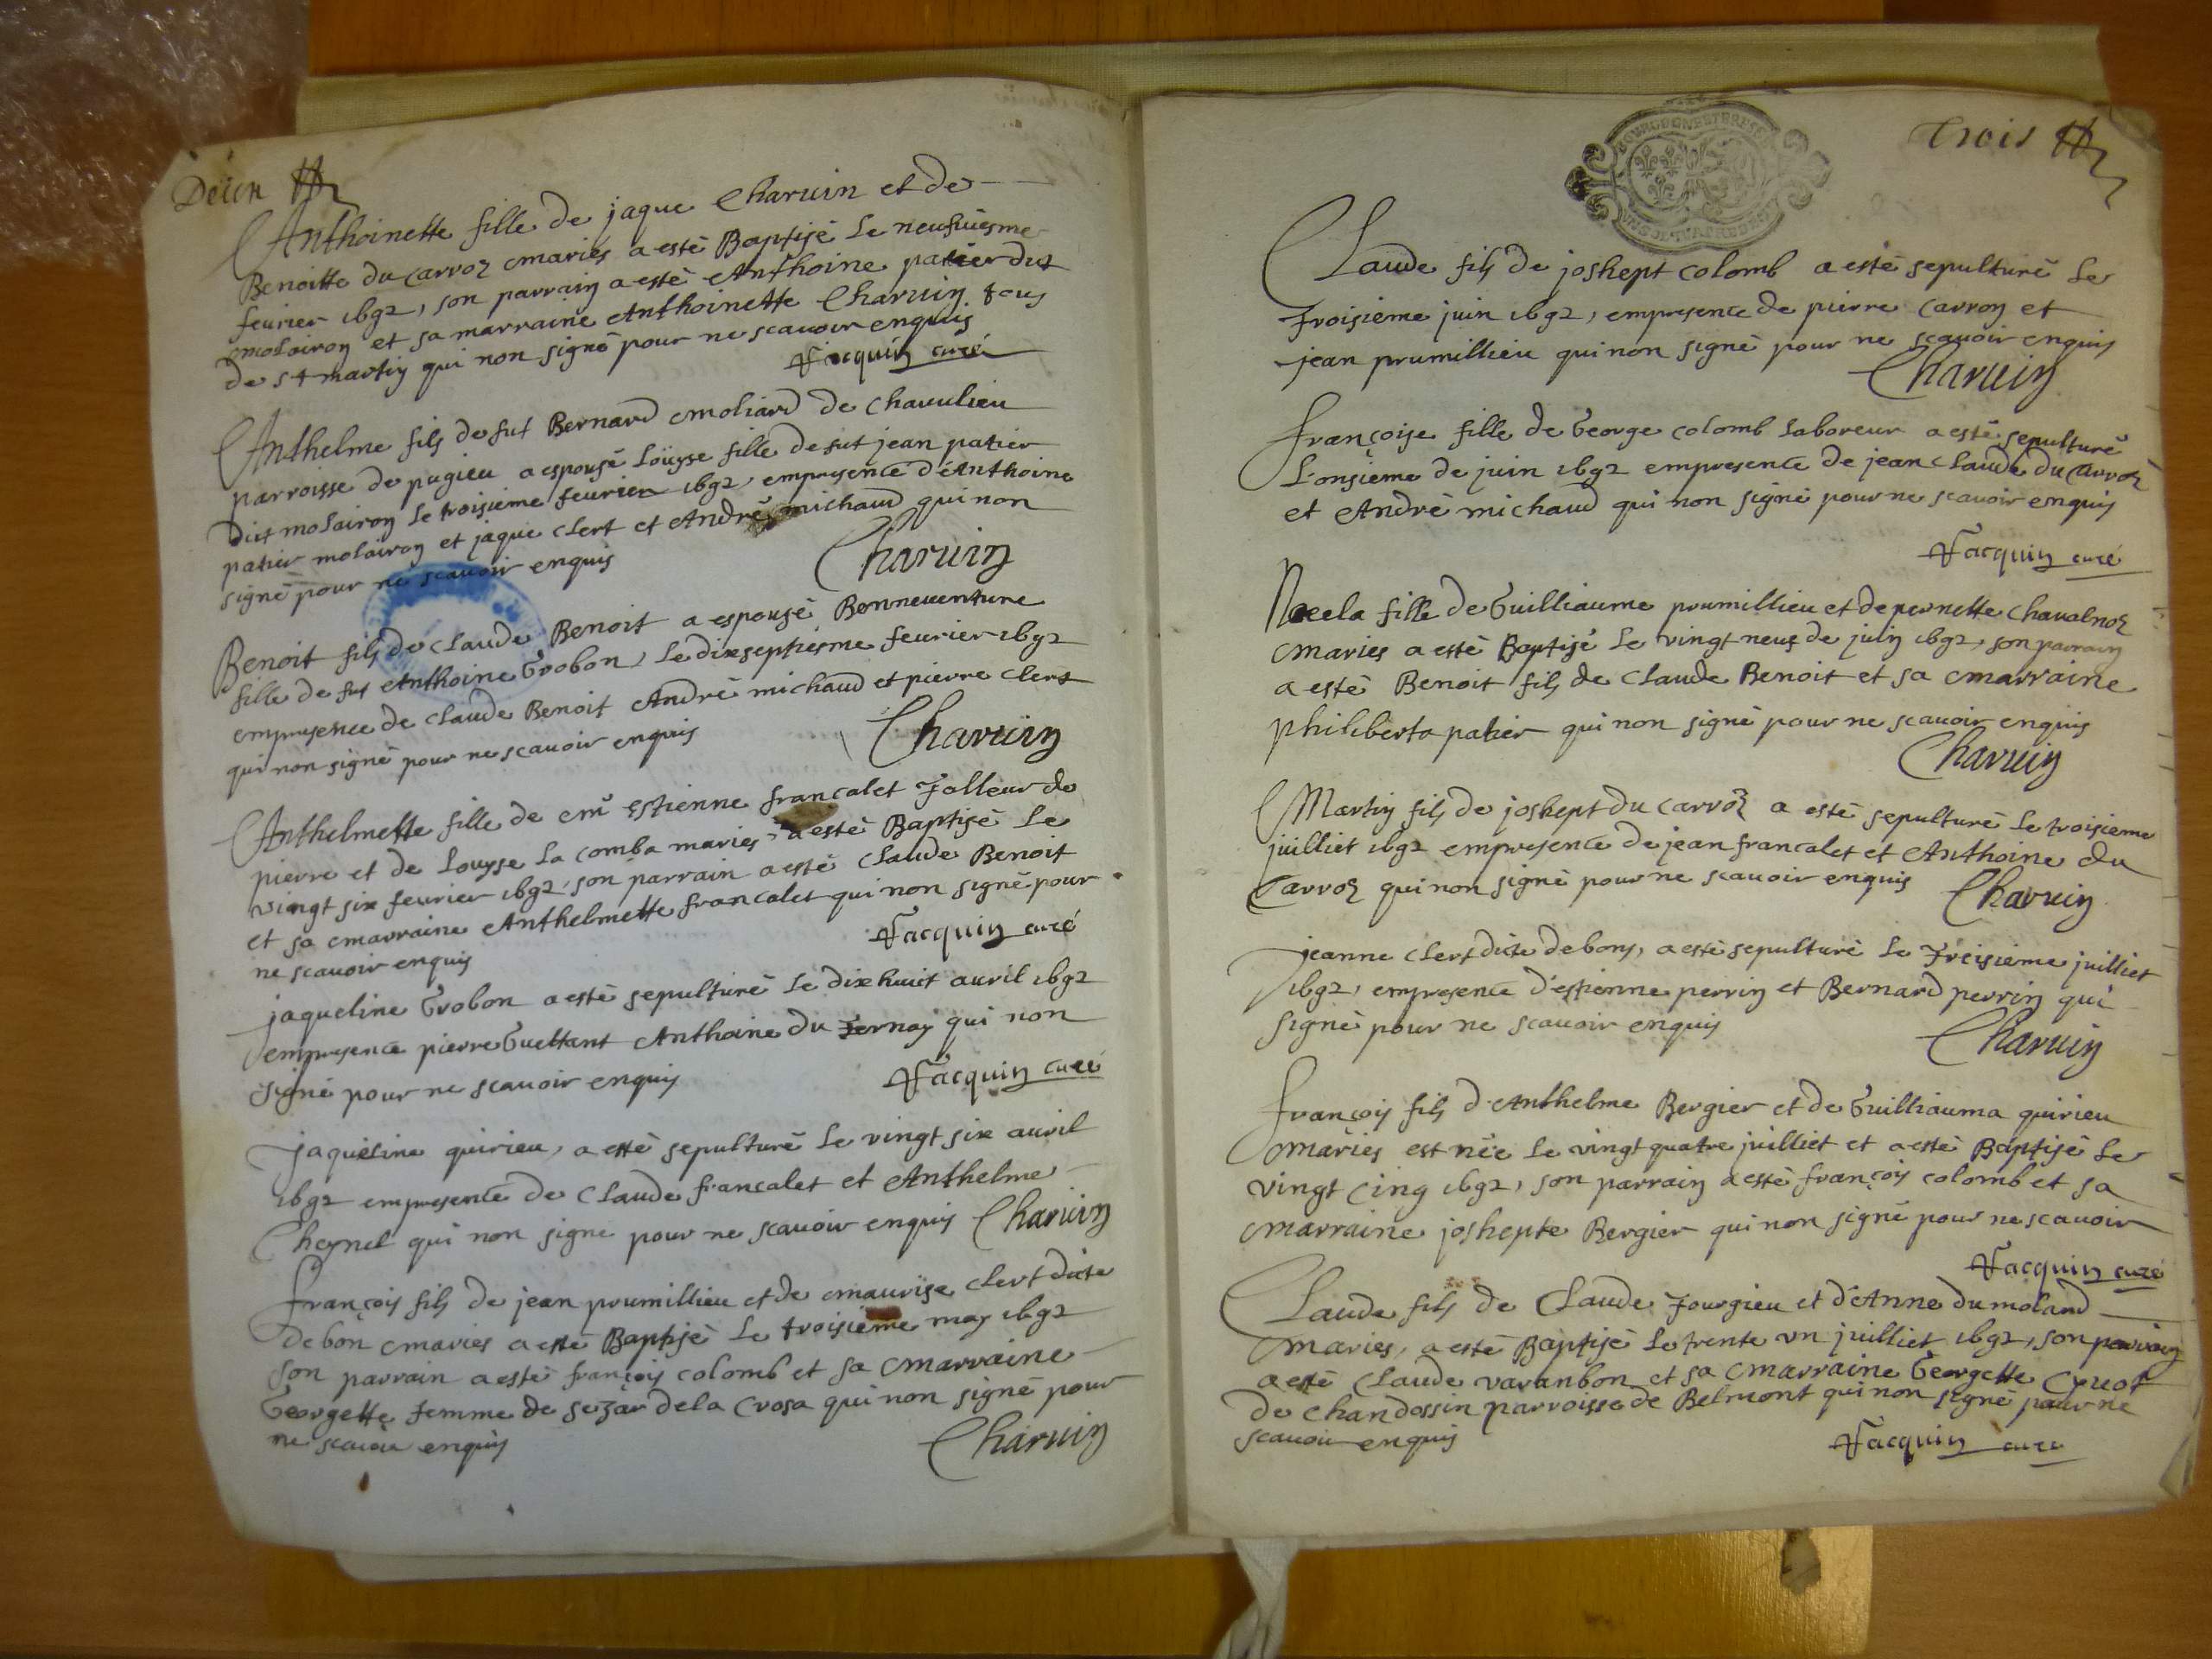 Deux
Anthoinette fille de jaque Charvin et de
Benoitte du carroz mariés a esté Baptisé le neufviesme
feurier 1692, son parrain a esté Anthoine patier dit
molairon et sa marraine Anthoinette Charvin tous
de st martin qui non signé pour ne scauoir enquis
Jacquin curé
Anthelme fils de fut Bernard moliard de Chauulieu
parroisse de pugieu a espousé Loüyse fille de fut jean patier
dit molairon le troisieme feurier 1692, empresence d'Anthoine
patier molairon et jaque Clert et André michaud qui non
signé pour ne scauoir enquis
Charvin
Benoit fils de Claude Benoit a espousé Bonneuenture
fille de fut Anthoine Grobon, le dixseptiesme feurier 1692
empresence de Claude Benoit André michaud et pierre Clert
qui non signé pour ne scauoir enquis
Charvin
Anthelmette fille de mr estienne francalet Talleur de
pierre et de Louyse la comba mariés a esté Baptisé le
vingt six feurier 1692, son parrain a esté Claude Benoit
et sa marraine Anthelmette francalet qui non signé pour
ne scauoir enquis
Jacquin curé
jaqueline Grobon a esté sepulturé le dix huit auril 1692
empresence pierre Guettant Anthoine du Ternay qui non
signé pour ne scauoir enquis
Jacquin curé
jaqueline quirieu, a esté sepulturé le vingt six auril
1692 empresence de Claude francalet et Anthelme
Cheynel qui non signe pour ne scauoir enquis Charvin
François fils de jean prumillieu et de maurise Clert dite
debon mariés a esté Baptisé le troisieme may 1692
son parrain a esté françois colomb et sa marraine
Georgette femme de sezar dela Crosa qui non signé pour
ne scauoir enquis
Charvin
Trois
BOURGOGNE ET BRESSE
Claude fils de joshept colomb a esté sepulturé le
Troisieme juin 1692, empresence de pierre Carron et
jean prumillieu qui non signé pour ne scauoir enquis
Charvin
françoise fille de George colomb laboreur a esté sepulturé
Lonsieme de juin 1692 empresence de jean Claude du Carroz
et André michaud qui non signé pour ne scauoir enquis
Jacquin curé
Noeela fille de Guilliaume prumillieu et de pernette Chavalnoz
mariés a esté Baptisé le vingt neuf de juin 1692, son parrain
a esté Benoit fils de Claude Benoit et sa marraine
philiberta patier qui non signé pour ne scauoir enquis
Charvin
Martin fils de joshept du Carroz a esté sepulturé le troisieme
juilliet 1692 empresence de jean francalet et Anthoine du
Carroz qui non signé pour ne scauoir enquis Charvin
jeanne Clert dite debons, a esté sepulturé le Treisieme juilliet
1692, empresence d'estienne perrin et Bernard perrin qui
signé pour ne scauoir enquis
Charvin
françois fils d'Anthelme Bergier et de Guilliauma quirieu
mariés est née le vingt quatre juilliet et a esté Baptisé le
vingt Cinq 1692, son parrain a esté françois colomb et sa
marraine joshepte Bergier qui non signé pour ne scauoir
Jacquin curé
Claude fils de Claude Jourgieu et d'Anne dumoland
mariés, a esté Baptisé le trente vn juilliet 1692, son parrain
a esté Claude varanbon et sa marraine Georgette Cruot
de Chandossin parroisse de Belmont qui non signé pour ne
scauoir enquis
Jacquin curé